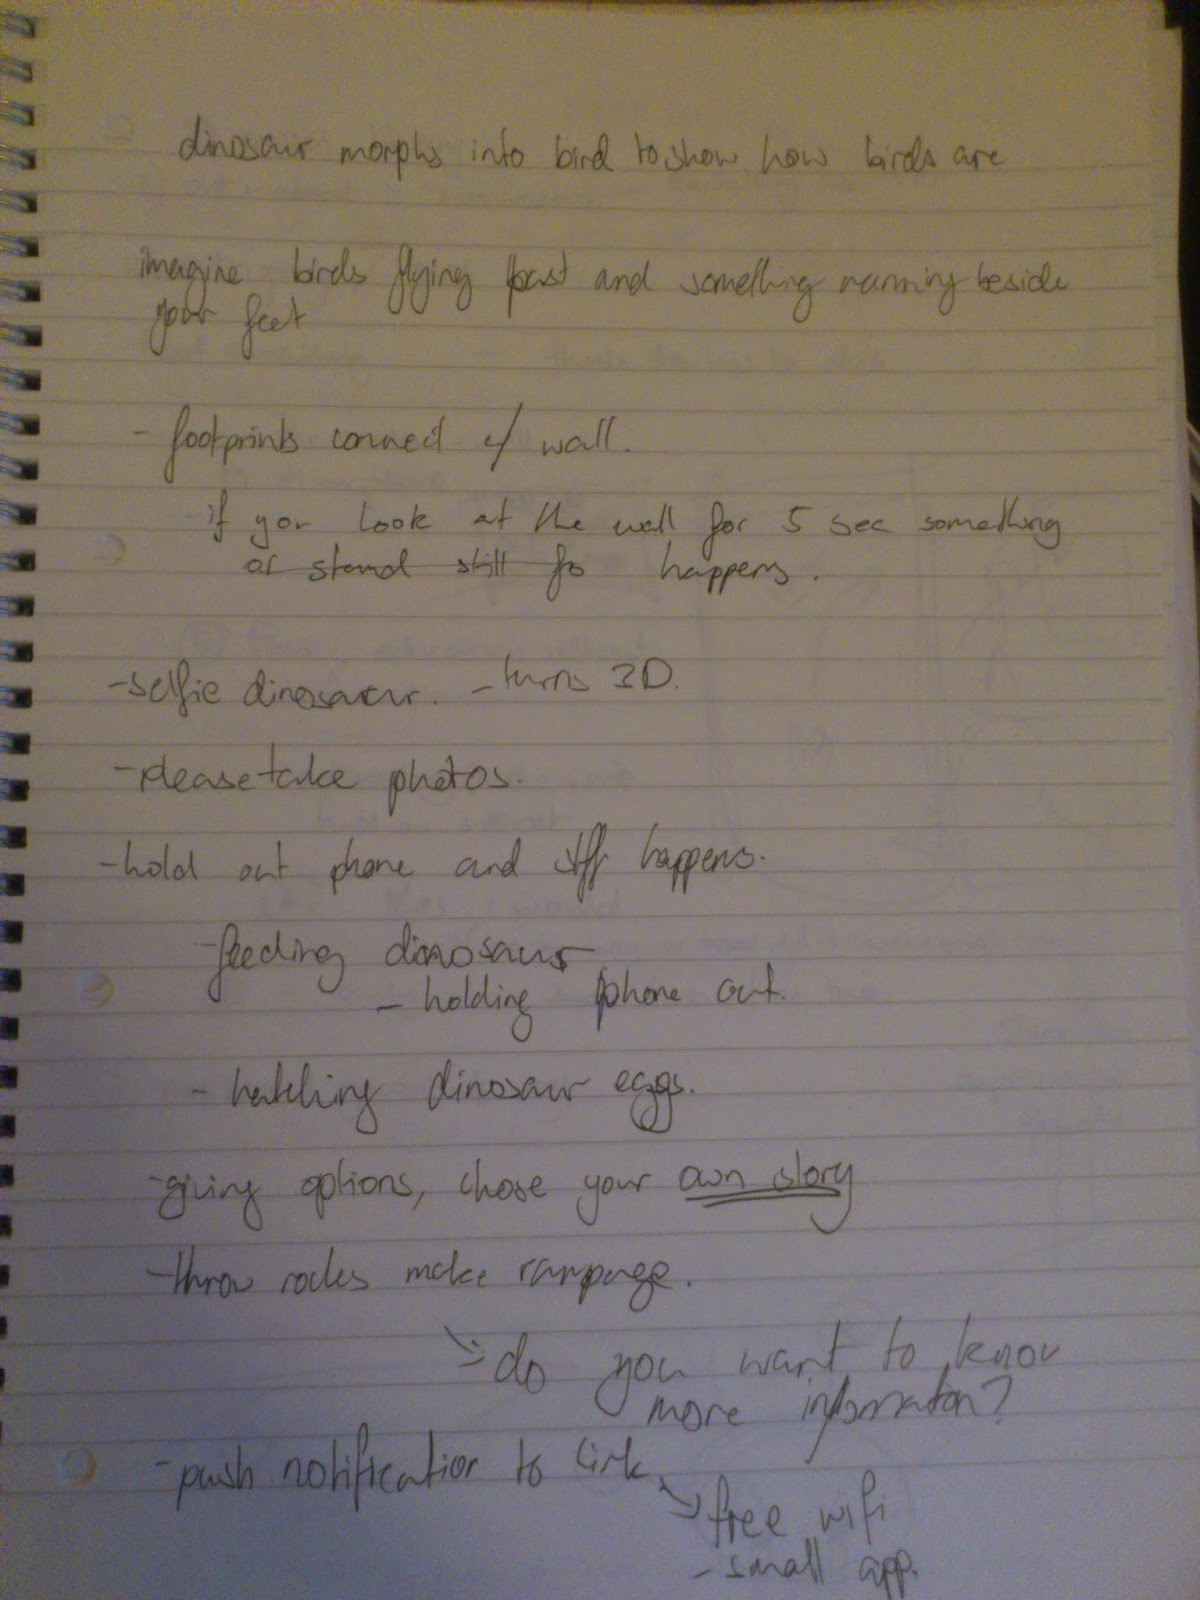 dinosaur morphs into bird to show how birds are
imagine birds flying past and something running beside
your feet
- footprints connect w/ wall.
- if you look at the wall for 5 sec something
or stand still fo happens.
- selfie dinosaur. - turns 3D.
- please take photos.
- hold out phone and stff happens.
- feeding dinosaurs
- holding phone out.
- hatching dinosaur eggs.
- giving options, chose your own story
- throw rocks make rampage.
do you want to know
more information?
- push notification to link
free wifi
- small app.